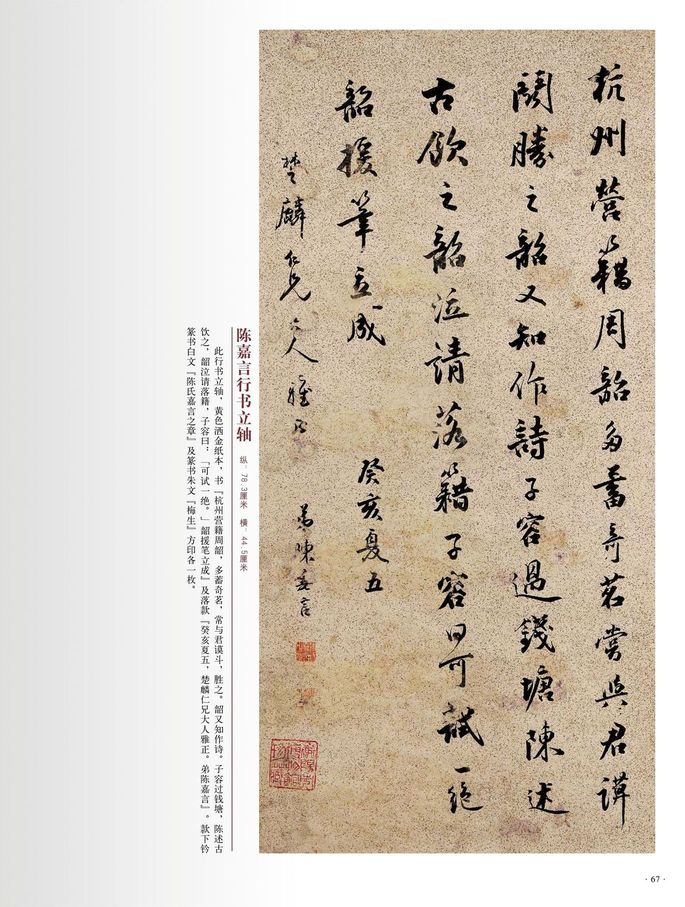 杭州營籍周韶多蓄奇茗嘗與君謨
鬪勝之韶又知作詩子容過錢塘陳述
古飲之韶泣請落籍子容曰可試一絕
韶援筆立成
癸亥夏五
楚麟仁兄大人雅正
弟陳嘉言
陈嘉言行书立轴
纵：78.3厘米 横：44.5厘米
此行书立轴，黄色洒金纸本，书『杭州营籍周韶，多蓄奇茗，常与君谟斗，胜之。韶又知作诗。子容过钱塘，陈述古
饮之，韶泣请落籍，子容曰：「可试一绝。」韶援笔立成』及落款『癸亥夏五，楚麟仁兄大人雅正。弟陈嘉言』。款下钤
篆书白文『陈氏嘉言之章』及篆书朱文『梅生』方印各一枚。
· 67 ·